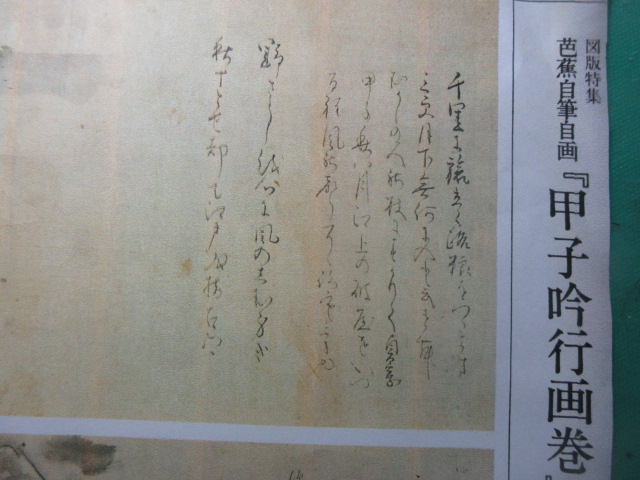 図版特集
芭蕉自筆自画
『甲子吟行画巻』
千里に旅立て路粮をつゝます
三更月下無何に入と云けむ
むかしの人の杖にすかりて貞享
甲子秋八月江上の破屋をいつ
る程風の声そゝろ寒け也
野さらしを心に風のしむ身哉
秋十とせ却て江戸を指古郷